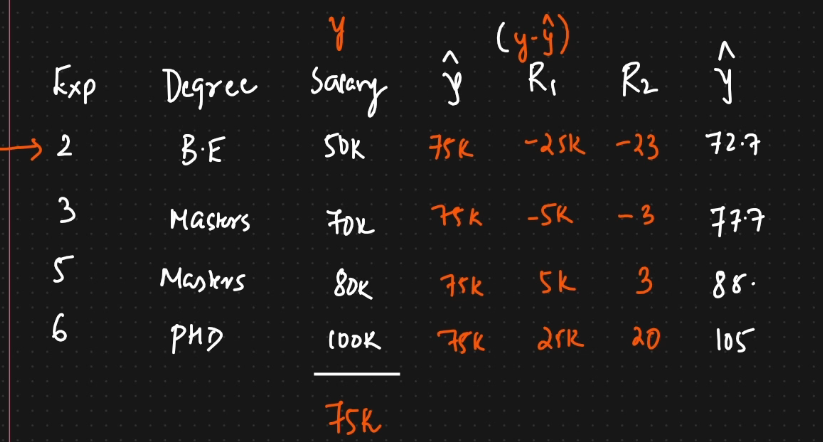 y (y-ŷ)
Exp Degree Salary ŷ R₁ R₂ ŷ
→ 2 B.E 50K 75K -25K -23 72.7
3 Masters 70K 75K -5K -3 77.7
5 Masters 80K 75K 5K 3 88.
6 PHD 100K 75K 25K 20 105
75K